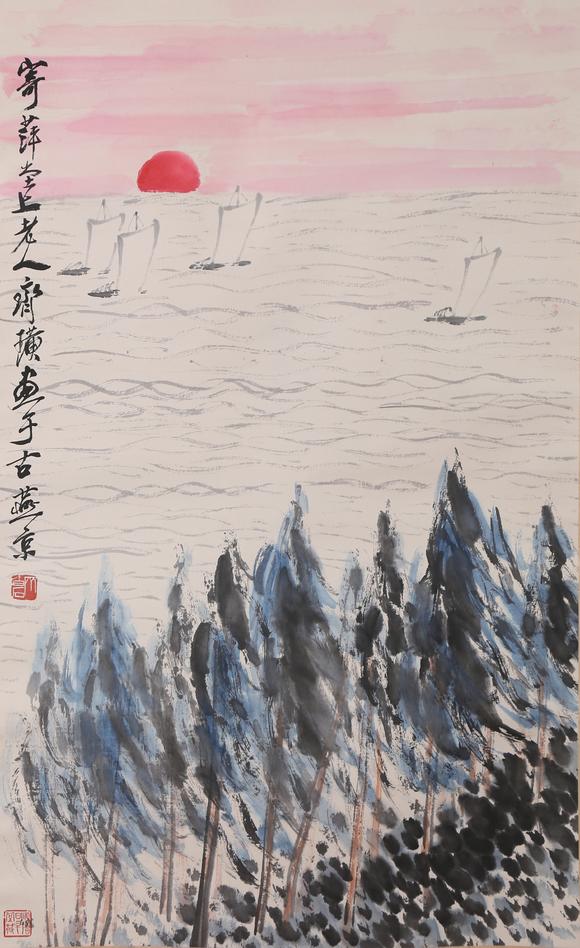 寄萍堂上老人齊璜畫于古燕京